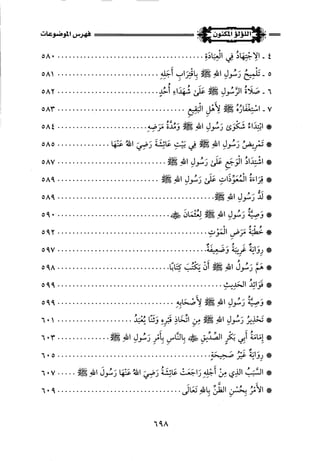 اللؤلؤ المكنون
فهرس الموضوعات
٤ - الِاجْتِهَادُ فِي الْعِبَادَةِ ٥٨٠
٥ - تَلْمِيحُ رَسُولِ اللهِ ﷺ بِاقْتِرَابِ أَجَلِهِ ٥٨١
٦ - صَلَاةُ الرَّسُولِ ﷺ عَلَى شُهَدَاءِ أُحُدٍ ٥٨٢
٧ - اسْتِغْفَارُهُ ﷺ لِأَهْلِ الْبَقِيعِ ٥٨٣
* ابْتِدَاءُ شَكْوَى رَسُولِ اللهِ ﷺ وَمُدَّةُ مَرَضِهِ ٥٨٤
* تَمْرِيضُ رَسُولِ اللهِ ﷺ فِي بَيْتِ عَائِشَةَ رَضِيَ اللهُ عَنْهَا ٥٨٥
* اشْتِدَادُ الْوَجَعِ عَلَى رَسُولِ اللهِ ﷺ ٥٨٧
* قِرَاءَةُ الْمُعَوِّذَاتِ عَلَى رَسُولِ اللهِ ﷺ ٥٨٩
* لَدُّ رَسُولِ اللهِ ﷺ ٥٨٩
* وَصِيَّةُ رَسُولِ اللهِ ﷺ لِعُثْمَانَ ﷺ ٥٩٠
* خُطْبَةُ مَرَضِ الْمَوْتِ ٥٩٢
* رِوَايَةٌ غَرِيبَةٌ وَضَعِيفَةٌ ٥٩٧
* هَمُّ رَسُولِ اللهِ ﷺ أَنْ يَكْتُبَ كِتَابًا ٥٩٨
* فَوَائِدُ الْحَدِيثِ ٥٩٩
* وَصِيَّةُ رَسُولِ اللهِ ﷺ لِأَصْحَابِهِ ٥٩٩
* تَحْذِيرُ رَسُولِ اللهِ ﷺ مِنِ اتِّخَاذِ قَبْرِهِ وَثَنًا يُعْبَدُ ٦٠١
* إِمَامَةُ أَبِي بَكْرٍ الصِّدِّيقِ ﷺ بِالنَّاسِ بِأَمْرِ رَسُولِ اللهِ ﷺ ٦٠٣
* رِوَايَةٌ غَيْرُ صَحِيحَةٍ ٦٠٥
* السَّبَبُ الَّذِي مِنْ أَجْلِهِ رَاجَعَتْ عَائِشَةُ رَضِيَ اللهُ عَنْهَا رَسُولَ اللهِ ﷺ ٦٠٧
* الْأَمْرُ بِحُسْنِ الظَّنِّ بِاللهِ تَعَالَى ٦٠٩
٦٩٨